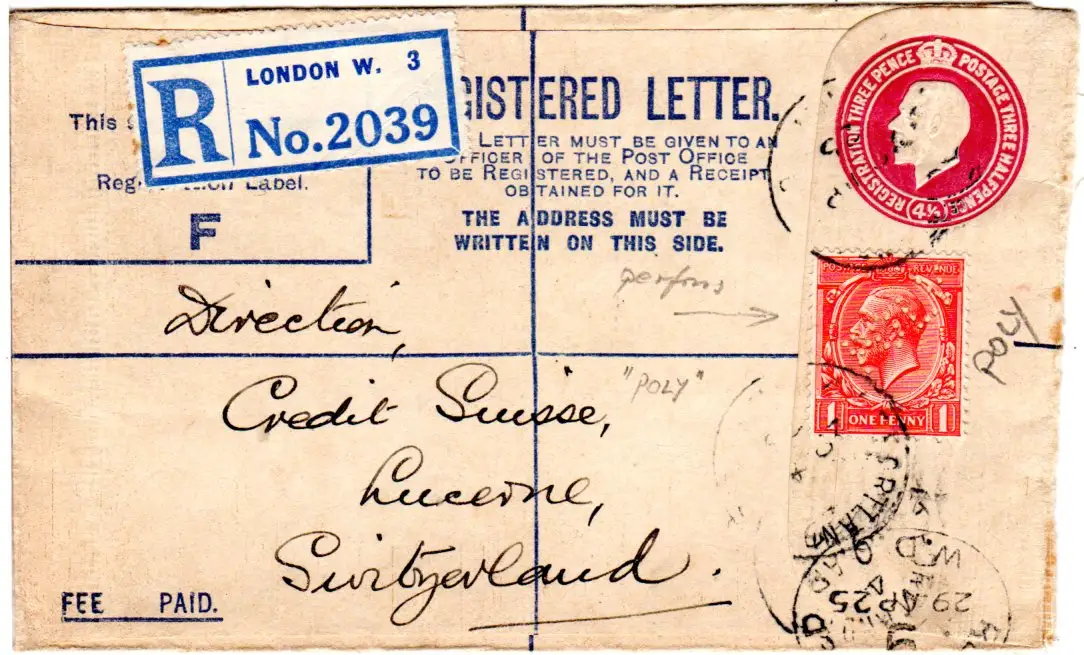 LONDON W. 3
R
No.2039
This
Label.
F
GISTERED LETTER.
LETTER MUST BE GIVEN TO AN
OFFICER OF THE POST OFFICE
TO BE REGISTERED, AND A RECEIPT
OBTAINED FOR IT.
THE ADDRESS MUST BE
WRITTEN ON THIS SIDE.
REGISTRATION THREE PENCE POSTAGE THREE HALFPENCE
4½
perfins
POSTAGE REVENUE
1 ONE PENNY 1
"POLY"
POLY
Direction,
Credit Suisse,
Lucerne,
Switzerland.
W.D
29 AP 25
FEE PAID.